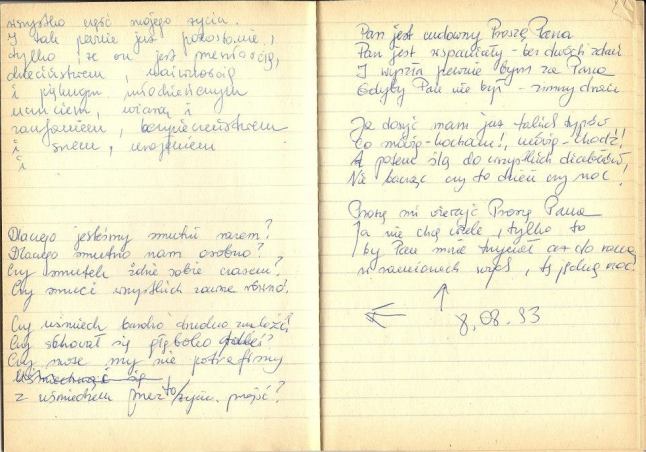 wszystko część mojego życia.
I tak pewnie już pozostanie,
tylko że on jest
dzieciństwem, naiwnością
i pięknym młodzieńczym
uczuciem, wiarą i
zaufaniem, bezpieczeństwem
i snem, marzeniem
i
Dlaczego jesteśmy smutni razem?
Dlaczego smutno nam osobno?
Czy smutek idzie sobie czasem?
Czy smuci wszystkich zawsze równo?
Czy uśmiech bardzo trudno znaleźć?
Czy schował się głęboko gdzieś?
Czy może my nie potrafimy
uśmiechnąć się
z uśmiechem przez to życie przejść?
Pan jest cudowny Proszę Pana
Pan jest wspaniały - bez dwóch zdań
I wyszła pewnie bym za Pana
Gdyby Pan nie był - zimny drań
Ja dosyć mam już takich typów
Co mówią - kocham!, mówią - chodź!
A potem ślą do wszystkich diabłów,
Nie bacząc czy to dzień czy noc.
Proszę mi wierzyć Proszę Pana
Ja nie chcę wiele, tylko to
by Pan mnie trzymał aż do rana
w ramionach swych, tę jedną noc.
8.08.93